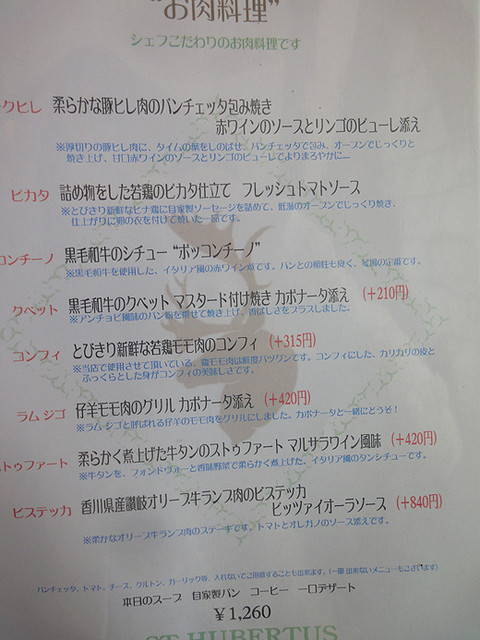 "お肉料理"
シェフこだわりのお肉料理です
クヒレ 柔らかな豚ヒレ肉のパンチェッタ包み焼き
赤ワインのソースとリンゴのピューレ添え
※厚切りの豚ヒレ肉に、タイムの葉をしのばせ、パンチェッタで包み、オーブンでじっくりと
焼き上げ、甘口赤ワインのソースとリンゴのピューレでよりまろやかに…
ピカタ 詰め物をした若鶏のピカタ仕立て フレッシュトマトソース
※とびきり新鮮なヒナ鶏に自家製ソーセージを詰めて、低温のオーブンでじっくり焼き、
仕上がりに卵の衣を付けて焼いた一品です。
コンチーノ 黒毛和牛のシチュー "ボッコンチーノ"
※黒毛和牛を使用した、イタリア風の赤ワイン煮です。パンとの相性も良く、冬場の定番です。
クペット 黒毛和牛のクペット マスタード付け焼き カポナータ添え (+210円)
※アンチョビ風味のパン粉を乗せて焼き上げ、香ばしさをプラスしました。
コンフィ とびきり新鮮な若鶏モモ肉のコンフィ (+315円)
※当店で使用させて頂いている、鶏モモ肉は鮮度バツグンです。コンフィにした、カリカリの皮と
ふっくらとした身がコンフィの美味しさです。
ラム ジゴ 仔羊モモ肉のグリル カポナータ添え (+420円)
※ラム・ジゴと呼ばれる仔羊のモモ肉をグリルにしました。カポナータと一緒にどうぞ!
ストゥファート 柔らかく煮上げた牛タンのストゥファート マルサラワイン風味 (+420円)
※牛タンを、フォンドヴォーと香味野菜で柔らかく煮上げた、イタリア風のタンシチューです。
ビステッカ 香川県産讃岐オリーブ牛ランプ肉のビステッカ
ピッツァイオーラソース (+840円)
※柔かなオリーブ牛ランプ肉のステーキです。トマトとオレガノのソース添えです。
パンチェッタ、トマト、チーズ、クルトン、ガーリック等、入れないでご用意することも出来ます。(一部 出来ないメニューもございます)
本日のスープ 自家製パン コーヒー 一口デザート
¥1,260
ST HUBERTUS